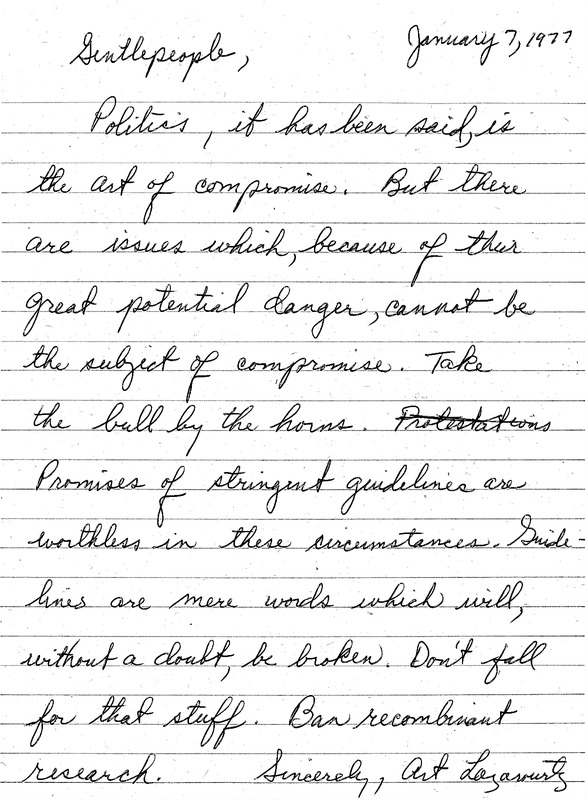 January 7, 1977
Gentlepeople,
Politics, it has been said, is
the art of compromise. But there
are issues which, because of their
great potential danger, cannot be
the subject of compromise. Take
the bull by the horns. Protestations
Promises of stringent guidelines are
worthless in these circumstances. Guide-
lines are mere words which will,
without a doubt, be broken. Don't fall
for that stuff. Ban recombinant
research. Sincerely, Art